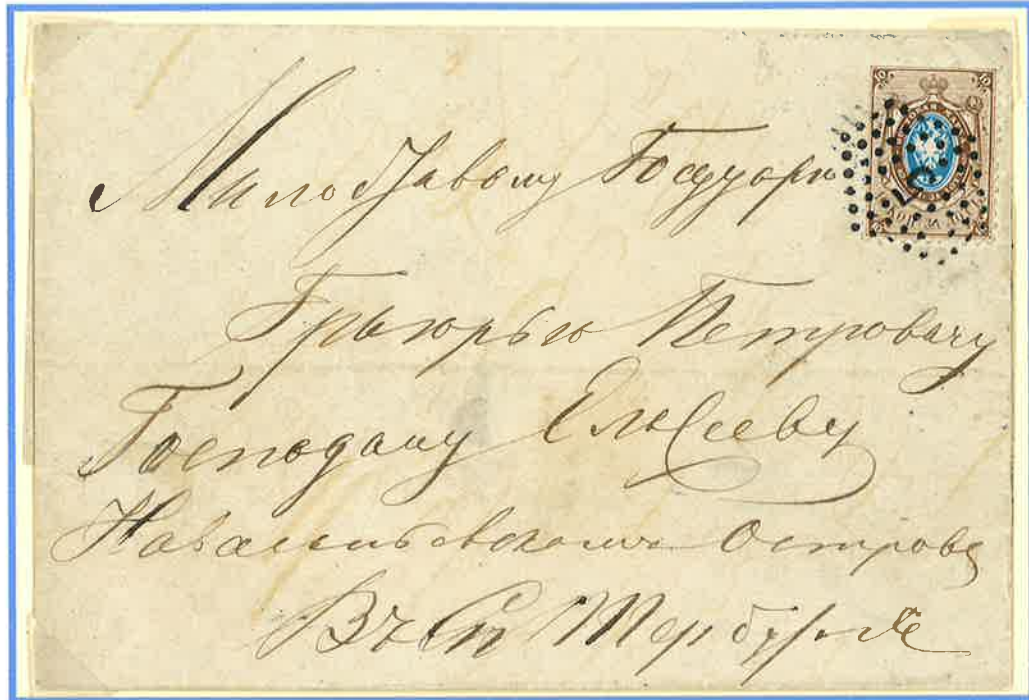 Мило стивому Государю
Грыюрью Петровичу
Господину Елисееву
Навасильевскомъ Острове
Въ Сп Терьбурге
10